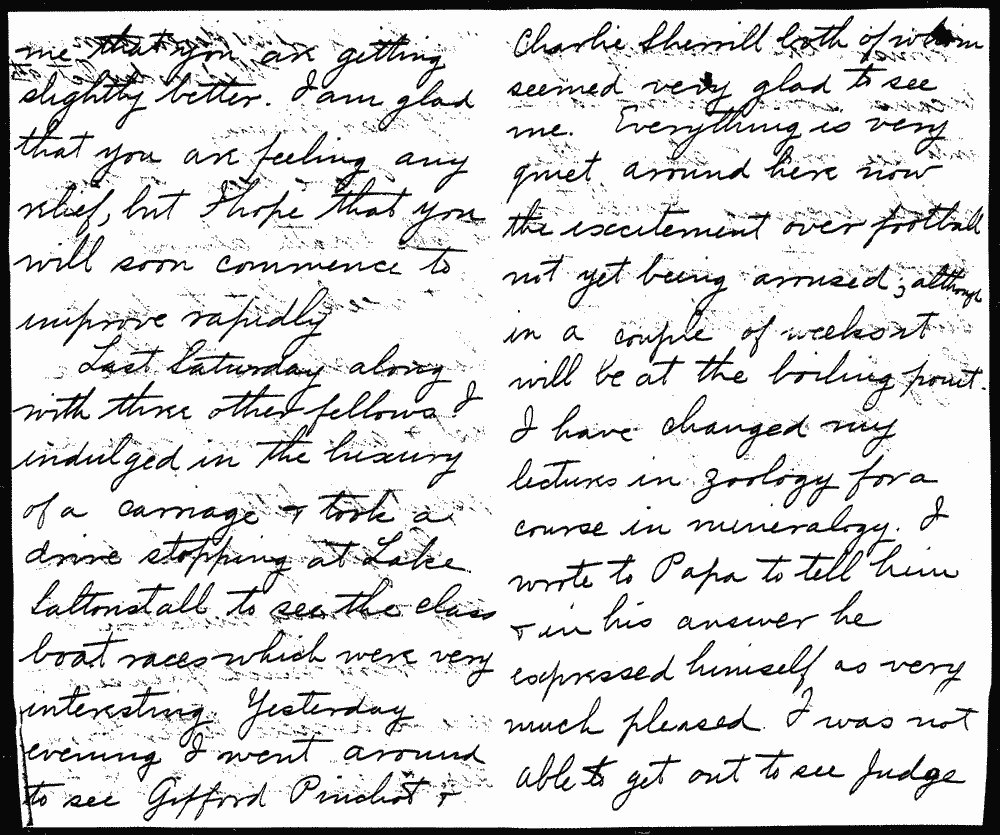 me that you are getting
slightly better. I am glad
that you are feeling any
relief, but I hope that you
will soon commence to
improve rapidly
Last Saturday along
with three other fellows I
indulged in the luxury
of a carriage & took a
drive stopping at Lake
Saltonstall to see the class
boat races which were very
interesting Yesterday
evening I went around
to see Gifford Pinchot &
Charlie Sherrill both of whom
seemed very glad to see
me. Everything is very
quiet around here now
the excitement over football
not yet being aroused; although
in a couple of weeks it
will be at the boiling point.
I have changed my
lectures in zoology for a
course in mineralogy. I
wrote to Papa to tell him
& in his answer he
expressed himself as very
much pleased. I was not
able to get out to see Judge